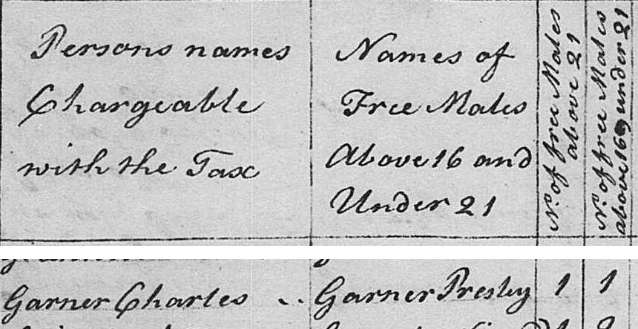 Persons names
Chargeable
with the Tax
Names of
Free Males
Above 16 and
Under 21
No. of free Males
above 21
No. of free Males
above 16 & under 21
Garner Charles .. Garner Presley 1 1